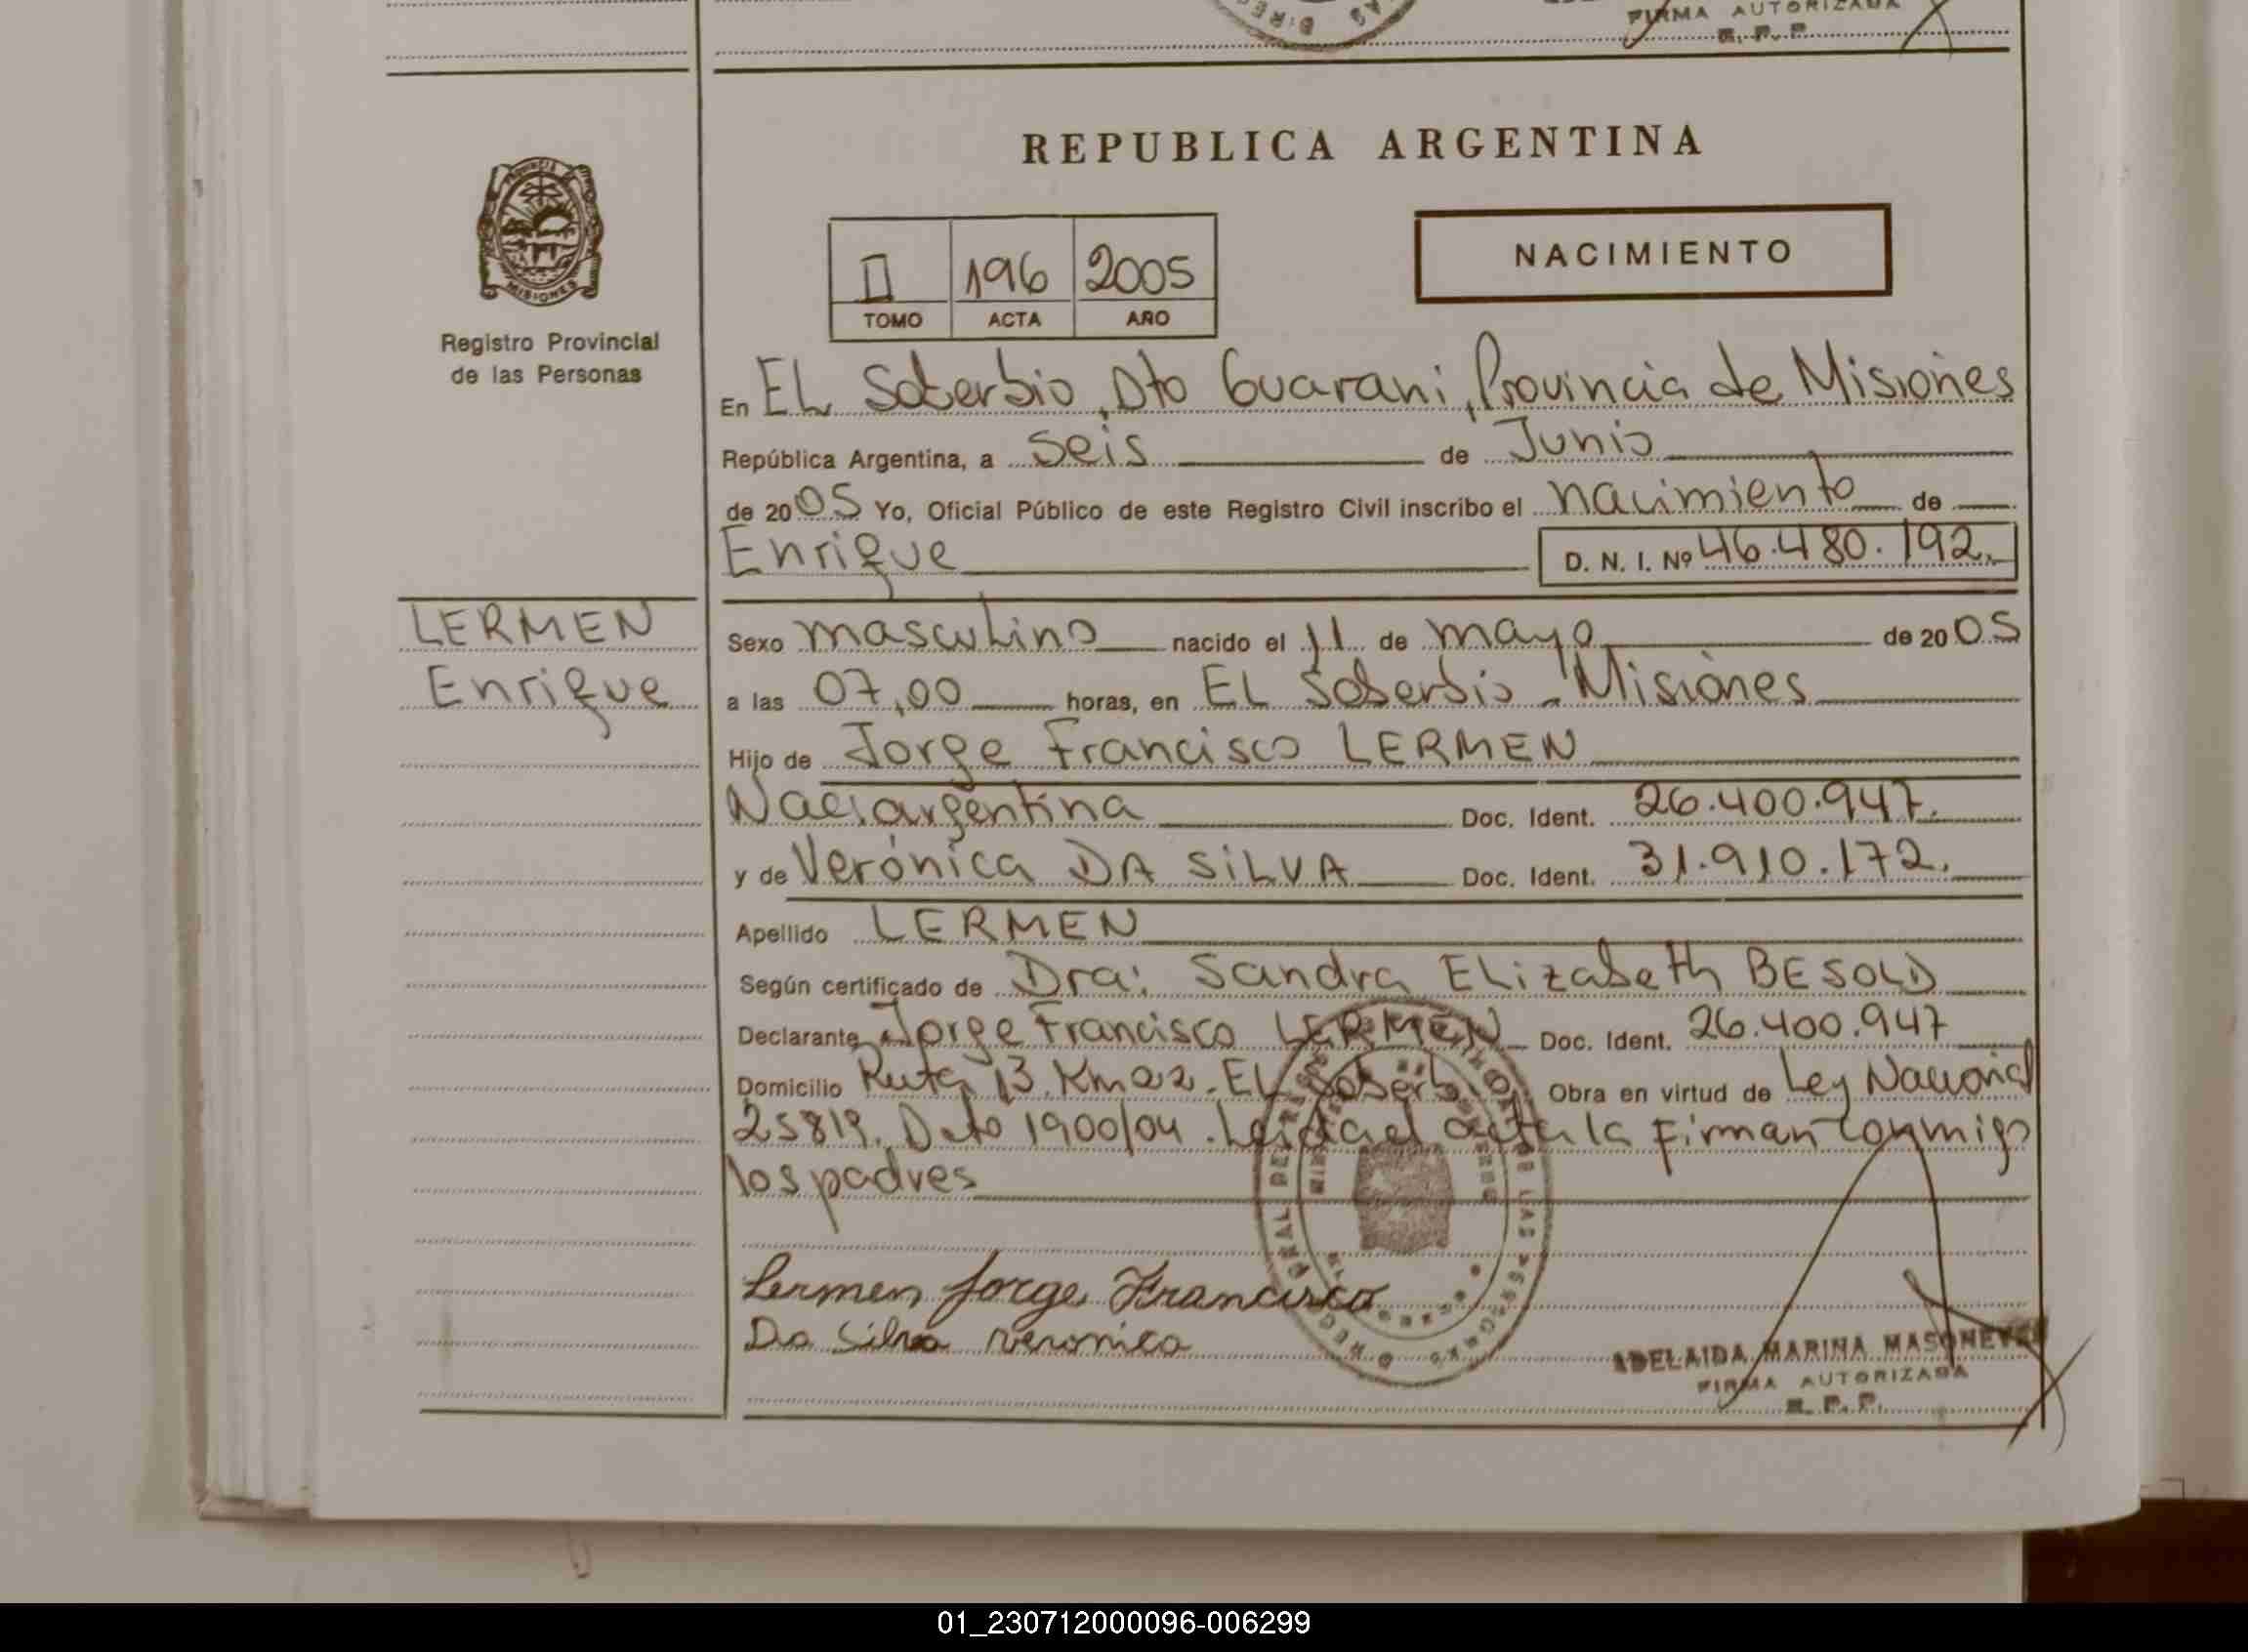 FIRMA AUTORIZADA
R. P. P.
REPUBLICA ARGENTINA
PROVINCIA
MISIONES
Registro Provincial
de las Personas
II 196 2005
TOMO ACTA AÑO
NACIMIENTO
En EL Soberbio, Dto Guarani, Provincia de Misiones
República Argentina, a seis de Junio
de 2005 Yo, Oficial Público de este Registro Civil inscribo el nacimiento de
Enrique D. N. I. Nº 46.480.192.
LERMEN
Enrique
Sexo masculino nacido el 11 de mayo de 2005
a las 07,00 horas, en EL Soberbio - Misiones
Hijo de Jorge Francisco LERMEN
Nac. argentina Doc. Ident. 26.400.947.
y de Verónica DA SiLVA Doc. Ident. 31.910.172.
Apellido LERMEN
Según certificado de Dra: Sandra ELizabeth BESOLD
Declarante Jorge Francisco LERMEN Doc. Ident. 26.400.947
Domicilio Ruta 13 Km 02. EL Soberbio Obra en virtud de Ley Nacional
25819. Dcto 1900/04. Leida el acta la firman conmigo
los padres
Lermen Jorge Francisco
Da Silva veronica
ADELAIDA MARINA
FIRMA AUTORIZADA
R. P. P.
01_230712000096-006299